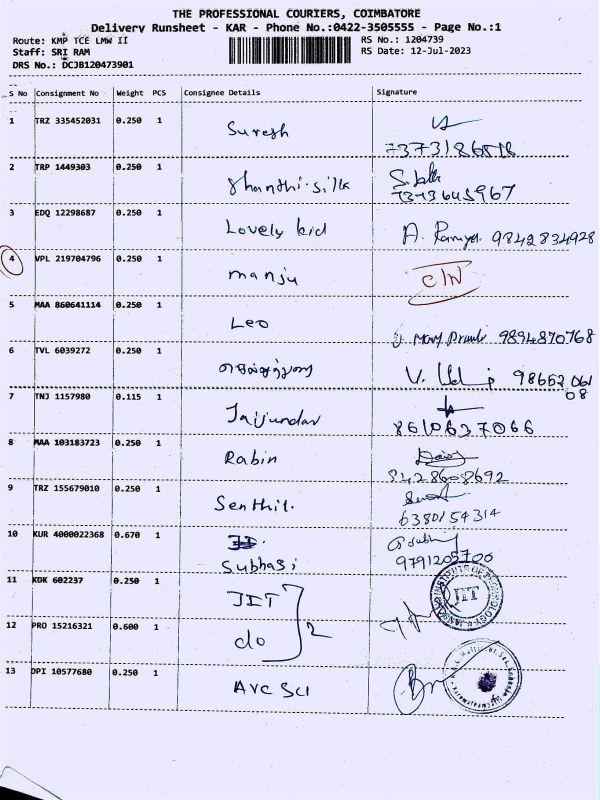 THE PROFESSIONAL COURIERS, COIMBATORE
Delivery Runsheet - KAR - Phone No.:0422-3505555 - Page No.:1
Route: KMP TCE LMW II
RS No.: 1204739
Staff: SRI RAM
RS Date: 12-Jul-2023
DRS No.: DCJB120473901
S No Consignment No Weight PCS Consignee Details Signature
1 TRZ 335452031 0.250 1 Suresh
2 TRP 1449303 0.250 1 Shanthi silk
3 EDQ 12298687 0.250 1 Lovely kid A. Ramya. 9842834928
4 VPL 219704796 0.250 1 manju C/N
5 MAA 860641114 0.250 1 Leo 9894870768
6 TVL 6039272 0.250 1
V. 98652 061
08
7 TNJ 1157980 0.115 1 Jaijundar
8610637066
8 MAA 103183723 0.250 1 Rabin
8428608692
9 TRZ 155679010 0.250 1 Senthil.
6380154314
10 KUR 4000022368 0.670 1
Subhasi 9791205700
11 KDK 602237 0.250 1 JIT JIT
12 PRO 15216321 0.600 1 do 2
13 DPI 10577680 0.250 1 AVC Scl